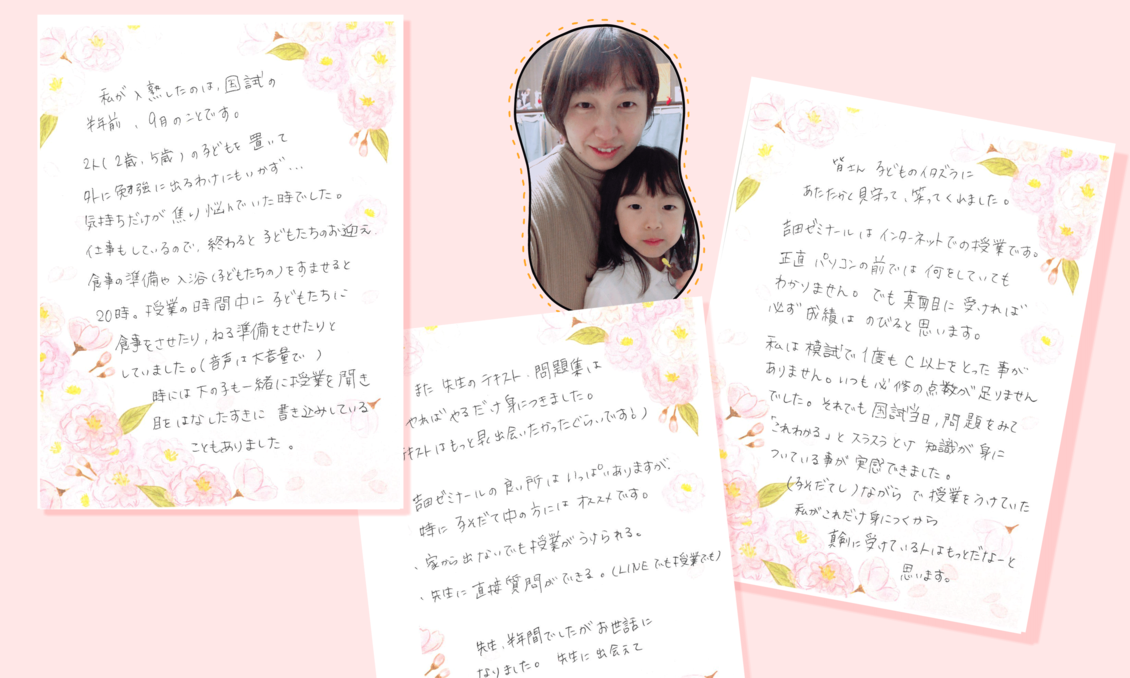 私が入塾したのは、国試の
半年前、9月のことです。
2人(2歳、5歳)の子どもを置いて
外に勉強に出るわけにもいかず…
気持ちだけが焦り悩んでいた時でした。
仕事もしているので、終わると子どもたちのお迎え、
食事の準備や入浴(子どもたちの)をすませると
20時。授業の時間中に子どもたちに
食事をさせたり、ねる準備をさせたりと
していました。(音声は大音量で)
時には下の子も一緒に授業を聞き
目をはなしたすきに書き込みしている
こともありました。
また先生のテキスト、問題集は
やればやるだけ身につきました。
テキストはもっと早く出会いたかったぐらいです!)
吉田ゼミナールの良い所はいっぱいありますが、
特に子そだて中の方にはオススメです。
、家から出ないでも授業がうけられる。
、先生に直接質問ができる。(LINEでも授業でも)
先生、半年間でしたがお世話に
なりました。先生に出会えて
皆さん子どものイタズラに
あたたかく見守って、笑ってくれました。
吉田ゼミナールはインターネットでの授業です。
正直パソコンの前では何をしていても
わかりません。でも真面目に受ければ
必ず成績はのびると思います。
私は模試で1度もC以上をとった事が
ありません。いつも必修の点数が足りません
でした。それでも国試当日、問題をみて
「これわかる」とスラスラとけ知識が身に
ついている事が実感できました。
(子そだてし)ながらで授業をうけていた
私がこれだけ身につくから
真剣に受けている人はもっとだなーと
思います。